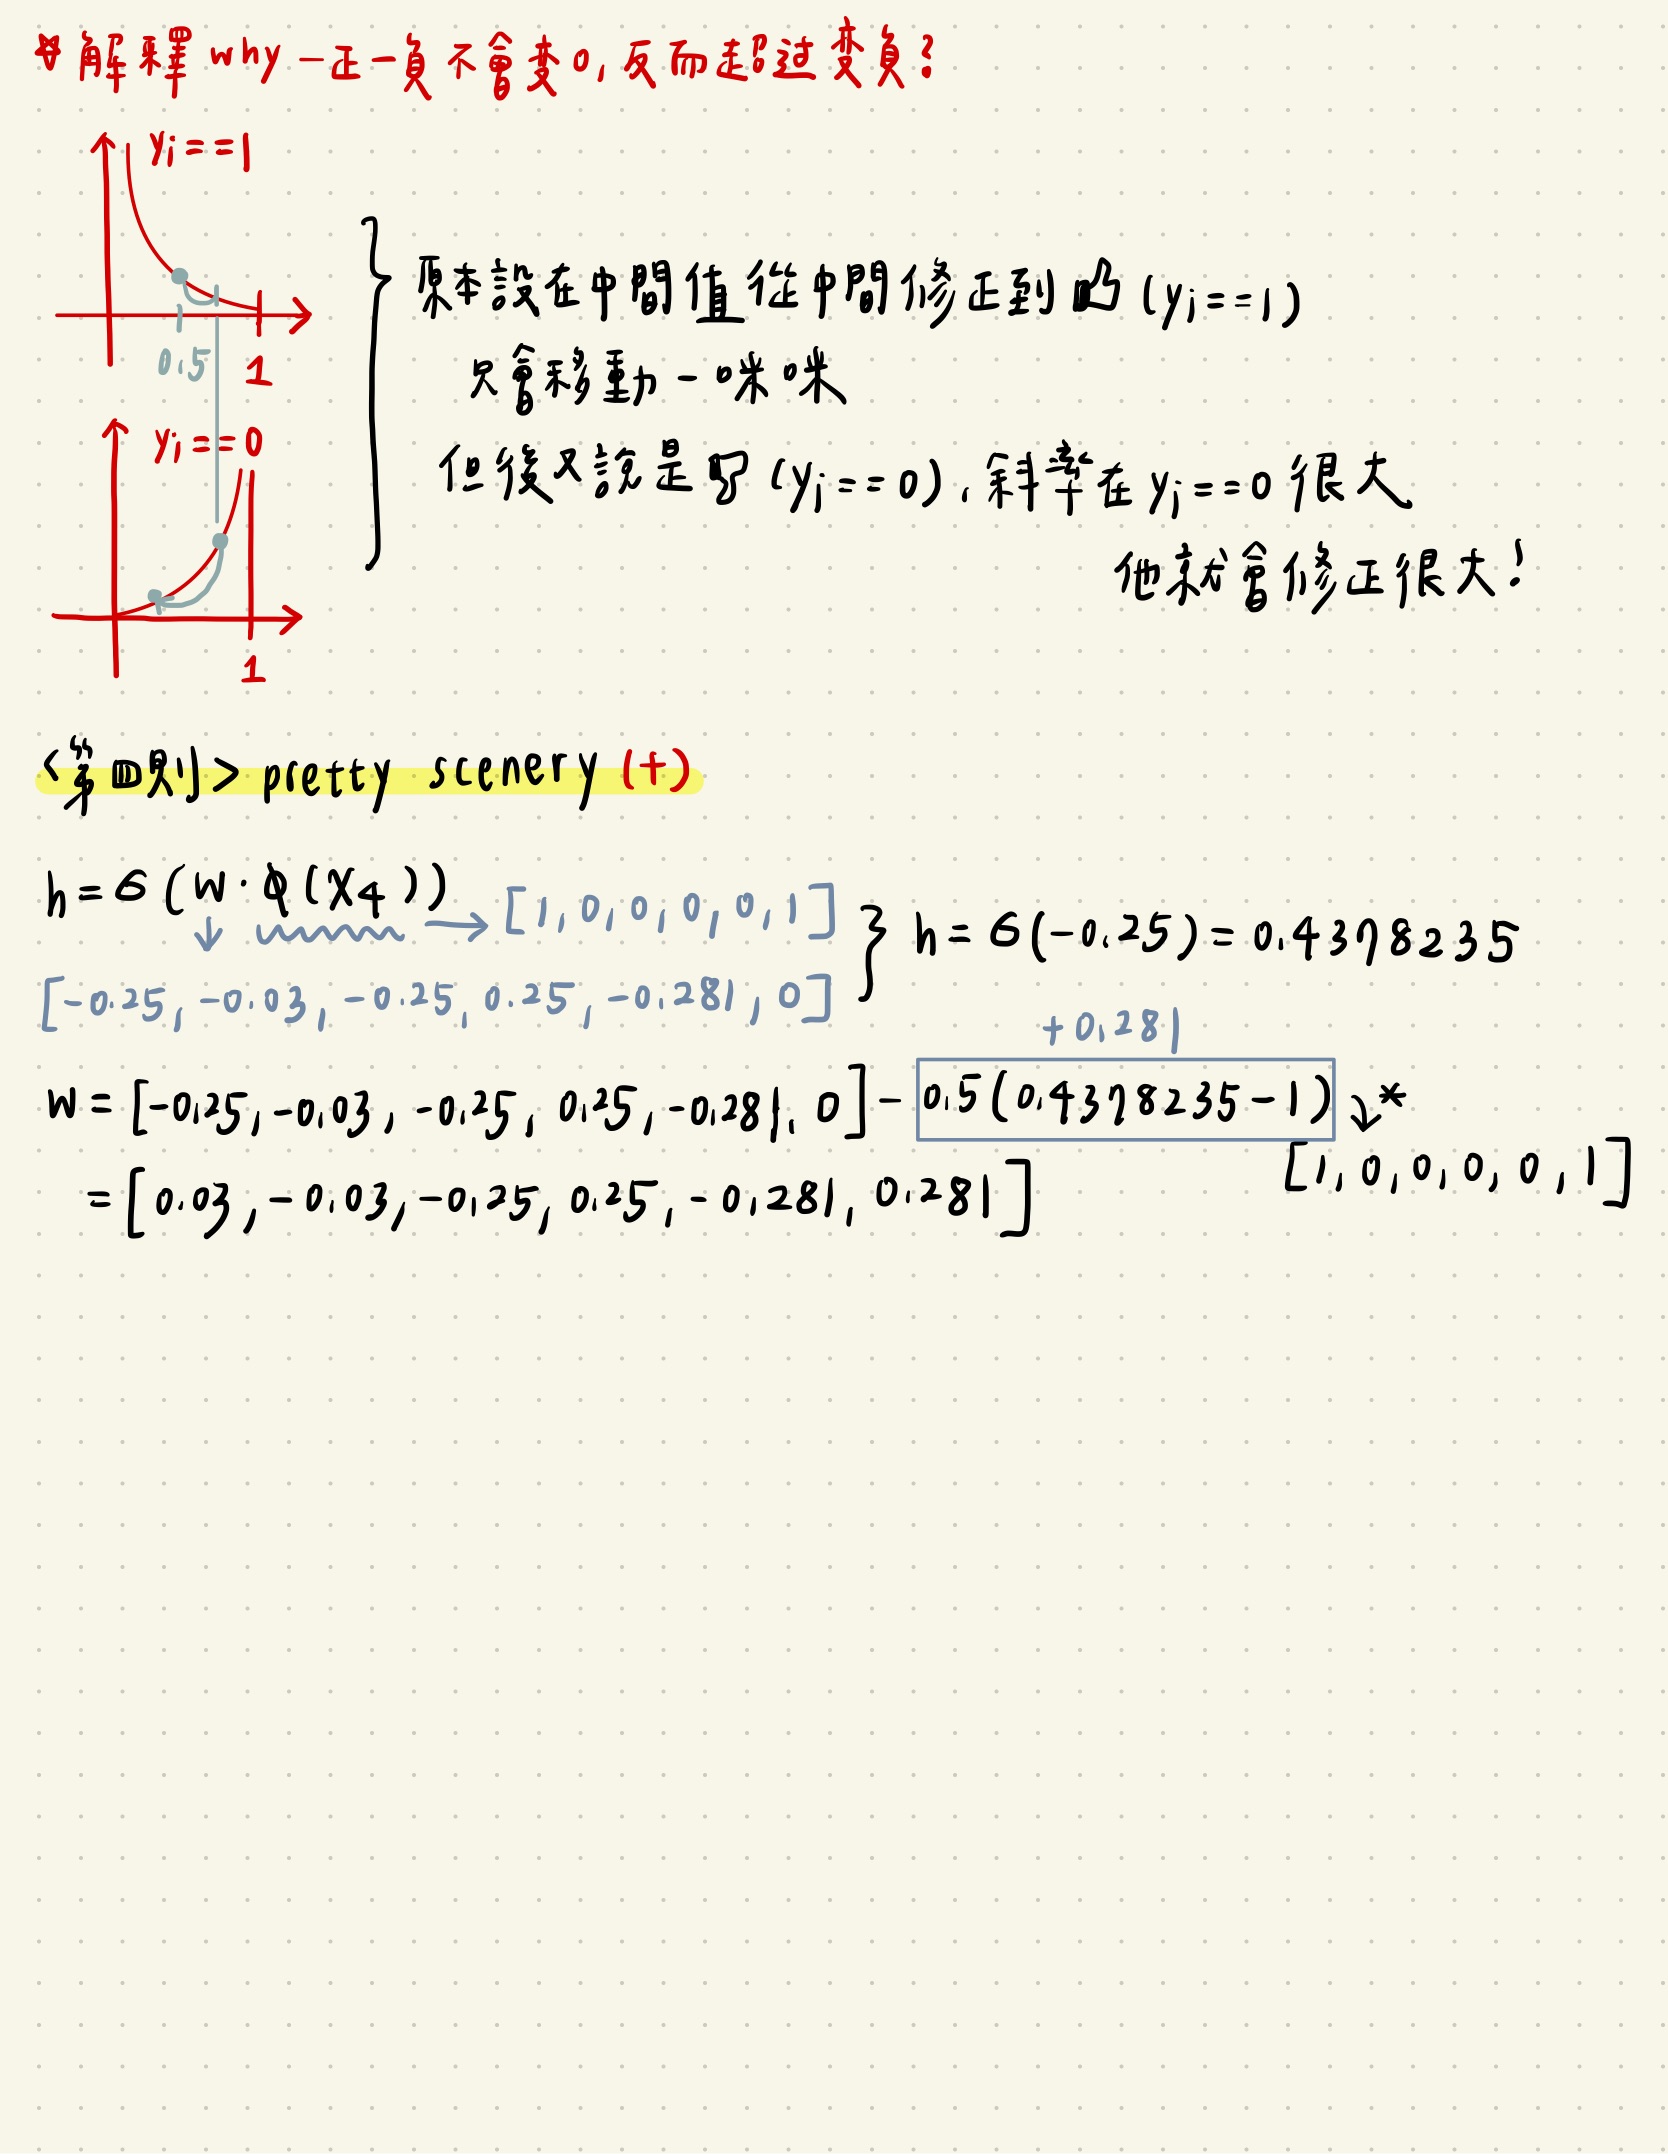 解釋 why 一正一負不會变0,反而超过变負?
yi==1
0.5
1
yi==0
1
原本設在中間值從中間修正到 👍 (yi==1)
只會移動一咪咪
但後又說是 👎 (yi==0),斜率在 yi==0 很大
他就會修正很大!
<第四則> pretty scenery (+)
h = σ(W·φ(X4))
[1,0,0,0,0,1]
[-0.25, -0.03, -0.25, 0.25, -0.281, 0]
h = σ(-0.25) = 0.4378235
+0.281
w = [-0.25, -0.03, -0.25, 0.25, -0.281, 0] - 0.5(0.4378235-1) *
[1,0,0,0,0,1]
= [0.03, -0.03, -0.25, 0.25, -0.281, 0.281]